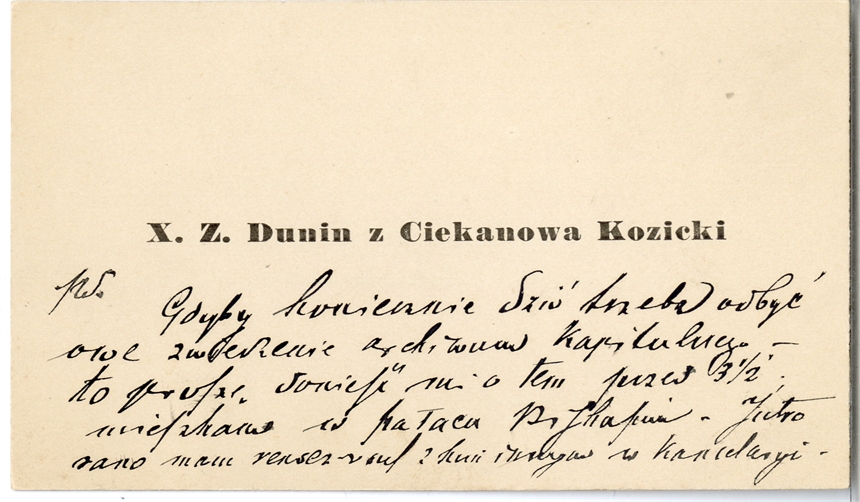 X. Z. Dunin z Ciekanowa Kozicki
Gdyby koniecznie dziś trzeba odbyć
owe zwiedzenie archiwum Kapitulnego –
to proszę donieść mi o tem przed 3½.
mieszkam w pałacu Biskupim. Jutro
rano mam rendez-vous z kim innym w Kancelaryi.